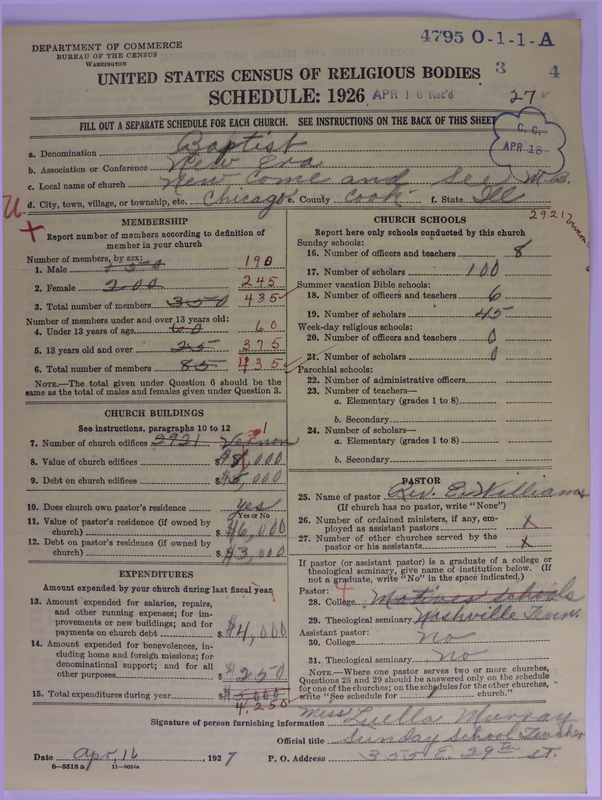 4795 O-1-1-A
DEPARTMENT OF COMMERCE
BUREAU OF THE CENSUS
WASHINGTON
3 4
UNITED STATES CENSUS OF RELIGIOUS BODIES
SCHEDULE: 1926 APR 16 Rec'd 27
FILL OUT A SEPARATE SCHEDULE FOR EACH CHURCH. SEE INSTRUCTIONS ON THE BACK OF THIS SHEET
C. C.
APR 18
a. Denomination Baptist
b. Association or Conference New Era
c. Local name of church New Come and See M.B.
d. City, town, village, or township, etc. Chicago e. County Cook f. State Ill
U
2921 Vernon
MEMBERSHIP
Report number of members according to definition of member in your church
Number of members, by sex:
1. Male 150 190
2. Female 200 245
3. Total number of members 350 435
Number of members under and over 13 years old:
4. Under 13 years of age 60 60
5. 13 years old and over 25 375
6. Total number of members 85 435
NOTE.—The total given under Question 6 should be the same as the total of males and females given under Question 3.
CHURCH BUILDINGS
See instructions, paragraphs 10 to 12
7. Number of church edifices 2921 Vernon 1
8. Value of church edifices $8,000
9. Debt on church edifices $5,000
10. Does church own pastor's residence? yes
Yes or No
11. Value of pastor's residence (if owned by church) $6,000
12. Debt on pastor's residence (if owned by church) $3,000
EXPENDITURES
Amount expended by your church during last fiscal year:
13. Amount expended for salaries, repairs, and other running expenses; for improvements or new buildings; and for payments on church debt $4,000
14. Amount expended for benevolences, including home and foreign missions; for denominational support; and for all other purposes $250
15. Total expenditures during year $5,000
4,250
CHURCH SCHOOLS
Report here only schools conducted by this church
Sunday schools:
16. Number of officers and teachers 8
17. Number of scholars 100
Summer vacation Bible schools:
18. Number of officers and teachers 6
19. Number of scholars 45
Week-day religious schools:
20. Number of officers and teachers 0
21. Number of scholars 0
Parochial schools:
22. Number of administrative officers
23. Number of teachers—
a. Elementary (grades 1 to 8)
b. Secondary
24. Number of scholars—
a. Elementary (grades 1 to 8)
b. Secondary
PASTOR
25. Name of pastor Rev. E. Williams
(If church has no pastor, write "None")
26. Number of ordained ministers, if any, employed as assistant pastors x
27. Number of other churches served by the pastor or his assistants x
If pastor (or assistant pastor) is a graduate of a college or theological seminary, give name of institution below. (If not a graduate, write "No" in the space indicated.)
Pastor:
28. College Schools
29. Theological seminary Nashville Tenn.
Assistant pastor:
30. College No
31. Theological seminary No
NOTE.—Where one pastor serves two or more churches, Questions 28 and 29 should be answered only on the schedule for one of the churches; on the schedules for the other churches, write "See schedule for church."
Signature of person furnishing information Miss Luella Murray
Official title Sunday School Teacher
Date Apr, 16, 1927 P. O. Address 353 E. 29th St.
8—5518 a 11—9054a